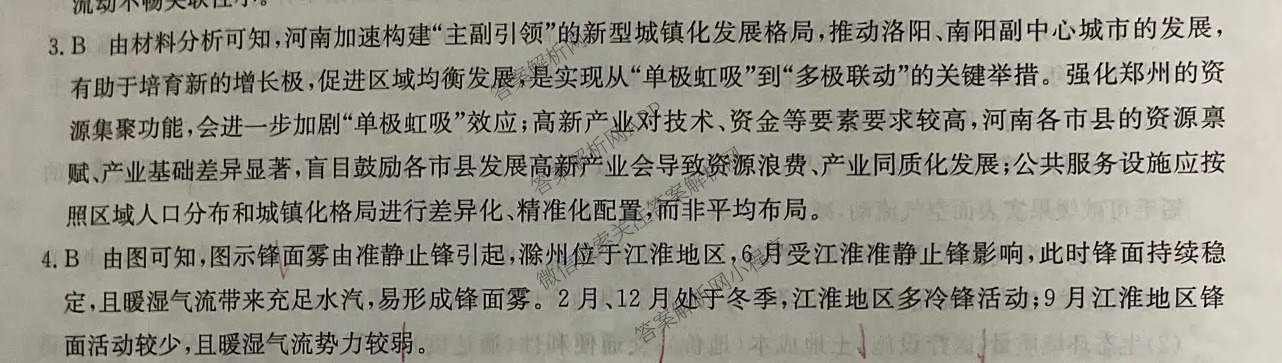 流动不畅关联性小。
3. B 由材料分析可知,河南加速构建“主副引领”的新型城镇化发展格局,推动洛阳、南阳副中心城市的发展,
有助于培育新的增长极,促进区域均衡发展,是实现从“单极虹吸”到“多极联动”的关键举措。强化郑州的资
源集聚功能,会进一步加剧“单极虹吸”效应;高新产业对技术、资金等要素要求较高,河南各市县的资源禀
赋、产业基础差异显著,盲目鼓励各市县发展高新产业会导致资源浪费、产业同质化发展;公共服务设施应按
照区域人口分布和城镇化格局进行差异化、精准化配置,而非平均布局。
4. B 由图可知,图示锋面雾由准静止锋引起,滁州位于江淮地区,6月受江淮准静止锋影响,此时锋面持续稳
定,且暖湿气流带来充足水汽,易形成锋面雾。2月、12月处于冬季,江淮地区多冷锋活动;9月江淮地区锋
面活动较少,且暖湿气流势力较弱。
答案解析网APP
微信搜索关注答案解析网
答案解析网小程序